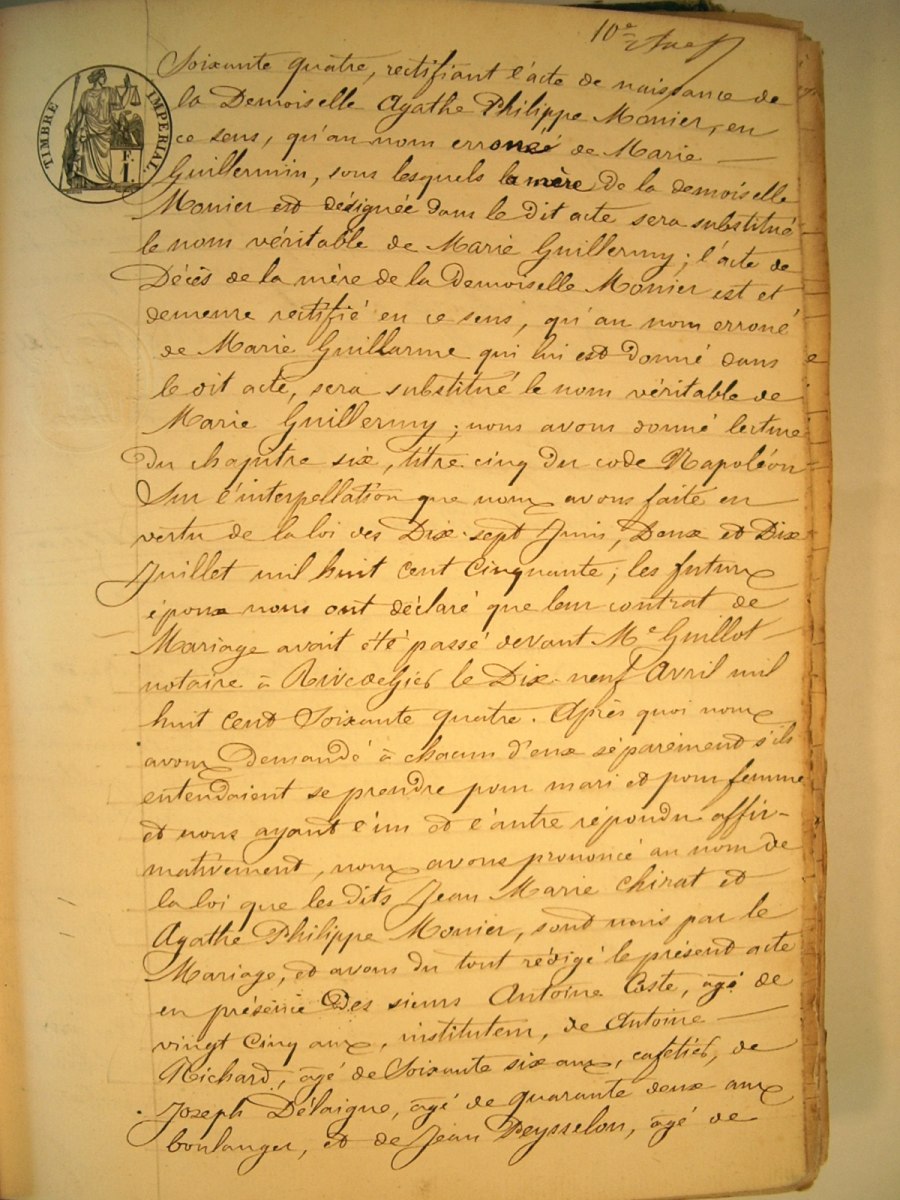 10e
TIMBRE IMPERIAL
F.
1.
Soixante quatre, rectifiant l'acte de naissance de
la Demoiselle Agathe Philippe Monier, en
ce sens, qu'au nom erroné de Marie —
Guillermin, sous lesquels la mère de la demoiselle
Monier est désignée dans le dit acte sera substitué
le nom véritable de Marie Guillermy; l'acte de
Décès de la mère de la Demoiselle Monier est et
demeure rectifié en ce sens, qu'au nom erroné
de Marie Guillarme qui lui est donné dans
le dit acte, sera substitué le nom véritable de
Marie Guillermy; nous avons donné lecture
du chapitre six, titre cinq du code Napoléon
Sur l'interpellation que nous avons faite en
vertu de la loi des Dix-sept Juin, Deux et Dix
Juillet mil huit cent cinquante; les futurs
époux nous ont déclaré que leur contrat de
Mariage avait été passé devant Me Guillot —
notaire à Rivedegier le Dix-neuf Avril mil
huit cent Soixante quatre. Après quoi nous
avons Demandé à chacun d'eux séparément s'ils
entendaient se prendre pour mari et pour femme
et nous ayant l'un et l'autre répondu affir-
mativement, nous avons prononcé au nom de
la loi que les dits Jean Marie Chirat et
Agathe Philippe Monier, sont unis par le
Mariage, et avons du tout rédigé le présent acte
en présence Des sieurs Antoine Coste, âgé de
vingt cinq ans, instituteur, de Antoine —
Richard, âgé de Soixante six ans, cafetier, de
Joseph Délaigue, âgé de quarante deux ans
boulanger, et de Jean Peysselon, âgé de